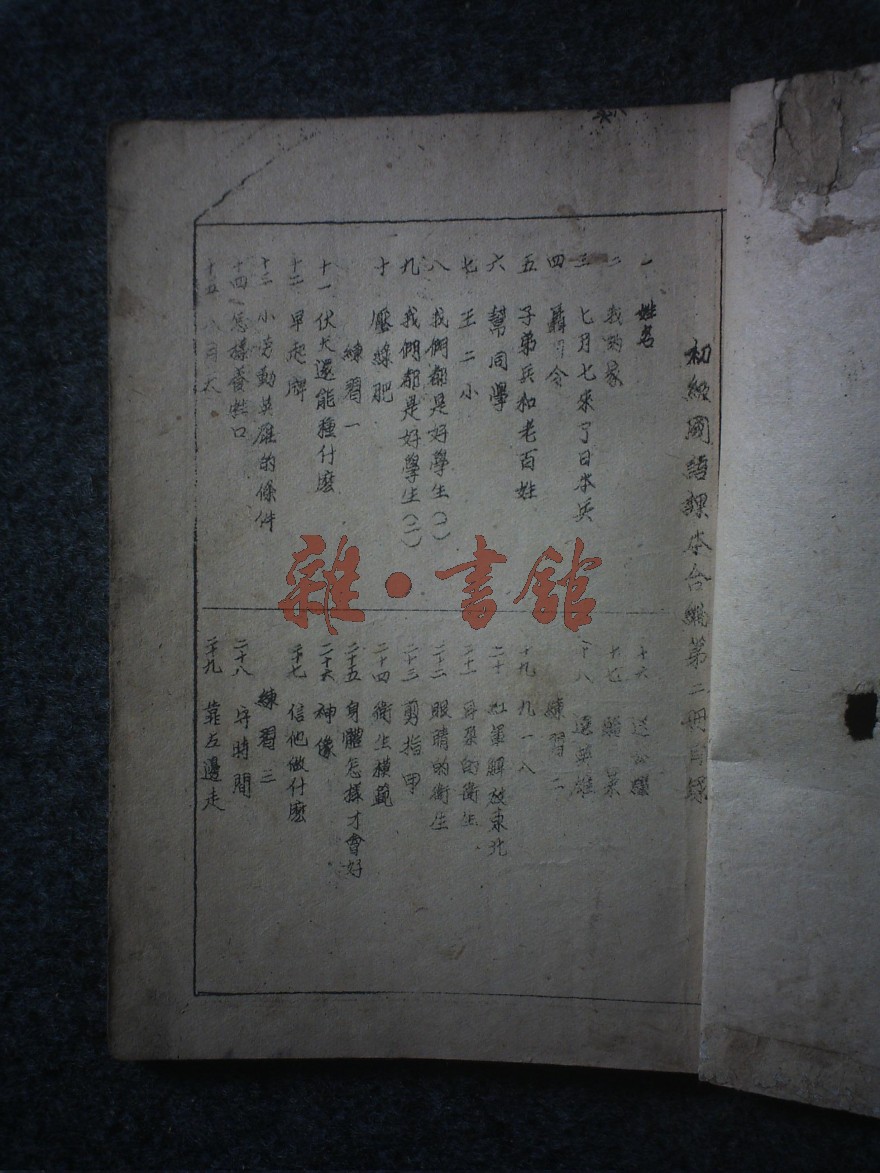 初級國語課本合編第二冊目錄
一 姓名
二 我的家
三 七月七來了日本兵
四 聶司令
五 子弟兵和老百姓
六 幫同學
七 王二小
八 我們都是好學生(一)
九 我們都是好學生(二)
十 壓綠肥
練習一
十一 伏天還能種什麽
十二 早起牌
十三 小勞動英雄的條件
十四 怎樣養牲口
十五 八月大
十六 送公糧
十七
十八 選英雄
練習二
十九 九一八
二十 紅軍解放東北
二十一 耳朶的衛生
二十二 眼睛的衛生
二十三 剪指甲
二十四 衛生模範
二十五 身體怎樣才會好
二十六 神像
二十七 信他做什麽
練習三
二十八 守時間
二十九 靠左邊走
雜·書館